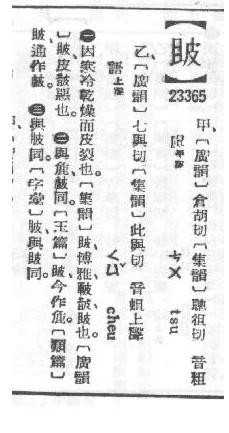 【】
23365
甲〔廣韻〕倉胡切〔集韻〕聰徂切 音粗
虞平聲 ㄘㄨ tsu
乙〔廣韻〕七與切〔集韻〕此與切 音蛆上聲
語上聲 ㄑㄩˇ cheu
㊀因寒冷乾燥而皮裂也。〔集韻〕博雅皴皵也。〔廣韻
〕皮皵惡也。㊁與麁同。〔玉篇〕今作麁。〔類篇〕
通作皵。㊂與同。〔字彙〕與同。